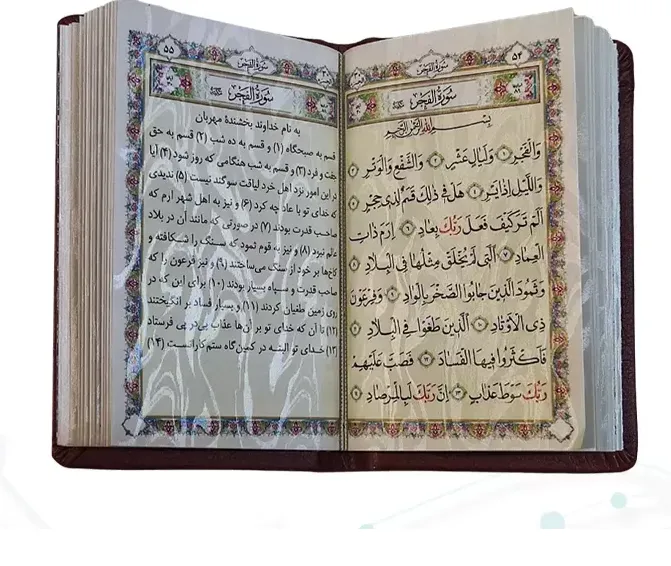 ٥٤
سورة الفجر
سورة الفجر
بسم الله الرحمن الرحيم
وَالْفَجْرِ ۱ وَلَيَالٍ عَشْرٍ ۲ وَالشَّفْعِ وَالْوَتْرِ ۳
وَاللَّيْلِ إِذَا يَسْرِ ۴ هَلْ فِي ذَٰلِكَ قَسَمٌ لِذِي حِجْرٍ ۵
أَلَمْ تَرَ كَيْفَ فَعَلَ رَبُّكَ بِعَادٍ ۶ إِرَمَ ذَاتِ
الْعِمَادِ ۷ الَّتِي لَمْ يُخْلَقْ مِثْلُهَا فِي الْبِلَادِ ۸
وَثَمُودَ الَّذِينَ جَابُوا الصَّخْرَ بِالْوَادِ ۹ وَفِرْعَوْنَ
ذِي الْأَوْتَادِ ۱۰ الَّذِينَ طَغَوْا فِي الْبِلَادِ ۱۱
فَأَكْثَرُوا فِيهَا الْفَسَادَ ۱۲ فَصَبَّ عَلَيْهِمْ
رَبُّكَ سَوْطَ عَذَابٍ ۱۳ إِنَّ رَبَّكَ لَبِالْمِرْصَادِ ۱۴
٥٥
سورة الفجر
سورة الفجر
به نام خداوند بخشندهٔ مهربان
قسم به صبحگاه (۱) و قسم به ده شب (۲) قسم به حق
جفت و فرد (۳) و قسم به شب هنگامی که روز شود (۴) آیا
در این امور نزد اهل خرد لیاقت سوگند نیست (۵) ندیدی
که خدای تو با عاد چه کرد (۶) و نیز به اهل شهر ارم که
صاحب قدرت بودند (۷) در صورتی که مانند آن در بلاد
عالم نبرد (۸) و نیز به قوم ثمود که سنگ را شکافته و
کاخ‌ها بر خود از سنگ می‌ساختند (۹) و نیز فرعون را که
صاحب قدرت و سپاه بسیار بودند (۱۰) برای این که در
روی زمین طغیان کردند (۱۱) و بسیار فساد بر انگیختند
(۱۲) تا آن که خدای تو بر آن‌ها عذاب پی‌در پی فرستاد
(۱۳) خدای تو البته در کمین‌گاه ستم‌کارانست (۱۴)